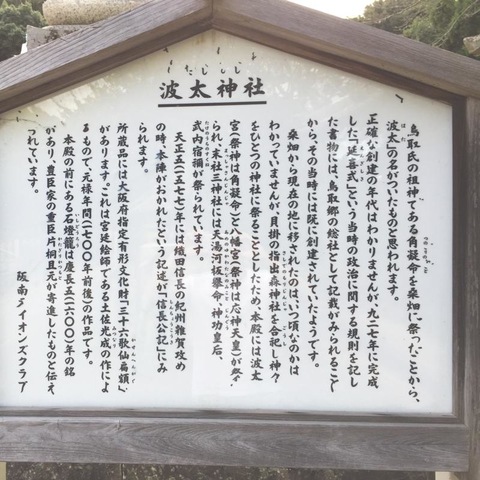 はたじんじゃ
波太神社
鳥取氏の祖神である角凝命を桒畑に祭ったことから、
波太の名がついたものと思われます。
正確な創建の年代はわかりませんが、九二七年に完成
した「延喜式」という当時の政治に関する規則を記し
た書物には、鳥取郷の総社として記載がみられること
から、その当時には既に創建されていたようです。
桒畑から現在の地に移されたのは、いつ頃なのかは
わかっていませんが、貝掛の指出森神社を合祀し神々
をひとつの神社に祭ることとしたため、本殿には波太
宮(祭神は角凝命)と八幡宮(祭神は応神天皇)が祭
られ、末社三神社には天湯河板擧命、神功皇后、
武内宿禰が祭られています。
天正五(一五七七)年には織田信長の紀州雜賀攻め
の時、本陣がおかれたという記述が「信長公記」にみ
られます。
所蔵品には大阪府指定有形文化財「三十六歌仙扁額」
があります。これは宮廷絵師である土佐光成の作によ
るもので、元禄年間(一七〇〇年前後)の作品です。
本殿の前にある石燈籠は慶長五(一六〇〇)年の銘
があり、豊臣家の重臣片桐且元が寄進したものと伝え
られています。
阪南ライオンズクラブ